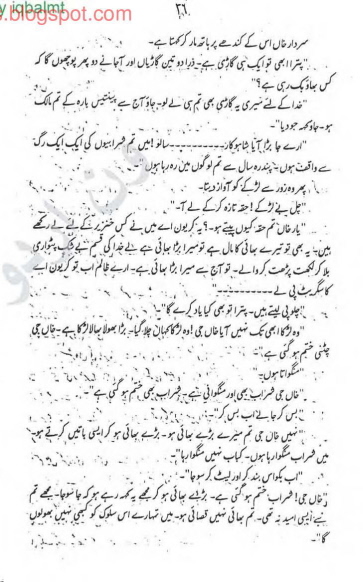 y iqbalmt
blogspot.com
۳۶
سردار خاں اس کے کندھے پر ہاتھ مار کر کہتا ہے۔
"پترا ابھی تو ایک ہی گاڑی ہے۔ ذرا دو تین گاڑیاں اور آجانے دو پھر پوچھوں گا کہ
کس بھاؤ بک رہی ہے؟"
"خدا کے لئے میری یہ گاڑی بھی تم ہی لے لو۔ جاؤ آج سے پینتیس بارہ کے تم مالک
ہو۔ جاؤ کہہ جو دیا"۔
"ارے جا بڑا آیا شاہوکار ۔۔۔۔۔۔۔۔۔۔ سالو! میں تم شرابیوں کی ایک ایک رگ
سے واقف ہوں۔ پندرہ سال سے تم لوگوں میں رہ رہا ہوں"۔
پھر وہ زور سے لڑکے کو آواز دیتا۔
"چل بے لڑکے! حقہ تازہ کر کے لے آ۔"
"یار خاں تم حقہ کیوں پیتے ہو۔؟ یہ کریون اے میں نے کس خنزیر کے لئے لے رکھے
ہیں۔ یہ بھی تو تیرے بھائی کا مال ہے تو میرا بڑا بھائی ہے بے خدا کی قسم بے شک پٹواری
بلا کر لکھت پڑھت کروا لے۔ تو آج سے میرا بڑا بھائی ہے۔ ارے ظالم اب تو کریون اے
کا سگریٹ پی لے ۔۔۔۔۔۔۔۔۔۔"
"چلو پی لیتے ہیں۔ پترا تو بھی کیا یاد کرے گا"۔
"وہ لڑکا ابھی تک نہیں آیا خاں جی! وہ لڑکا کہاں چلا گیا۔ بڑا بھولا بھالا لڑکا ہے۔ خاں جی
چٹنی ختم ہو گئی ہے"۔
"منگواتا ہوں۔"
"خاں جی شراب بھی اور منگوانی ہے۔ شراب بھی ختم ہو گئی ہے"۔
"بس کر جانے اب بس کر"۔
"نہیں خاں جی تم میرے بڑے بھائی ہو۔ بڑے بھائی ہو کر ایسی باتیں کرتے ہو۔
میں شراب منگوا رہا ہوں۔ کباب نہیں منگوا رہا"۔
"اب بکواس بند کر اور لیٹ کر سو جا"۔
"خاں جی! شراب ختم ہو گئی ہے۔ بڑے بھائی ہو کر مجھے یہ کہہ رہے ہو کہ جا سو جا۔ مجھے تم
سے ایسی امید نہ تھی۔ تم بھائی نہیں قصائی ہو۔ میں تمہارے اس سلوک کو کبھی نہیں بھولوں
گا"۔